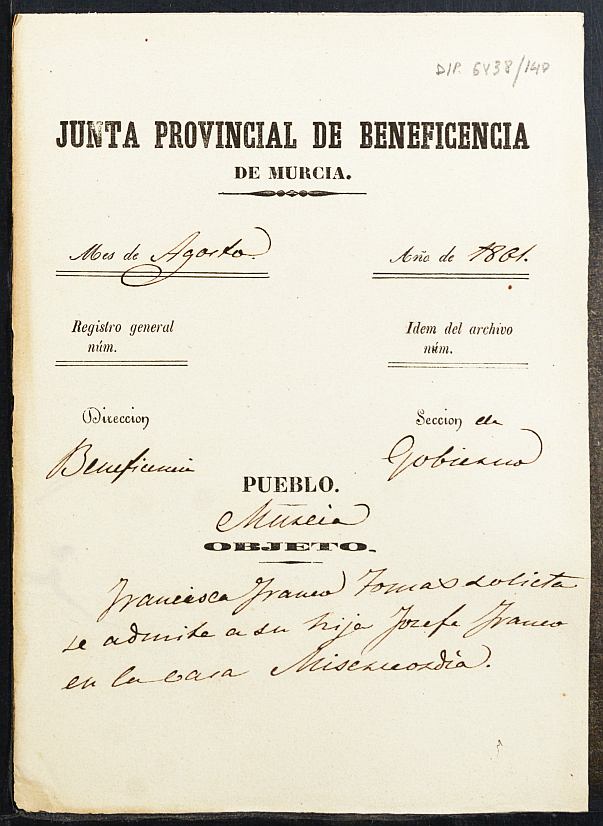 DIP. 6438/140
JUNTA PROVINCIAL DE BENEFICENCIA
DE MURCIA.
Mes de Agosto.
Año de 1861.
Registro general
núm.
Idem del archivo
núm.
Direccion
Seccion de
Beneficencia
Gobierno
PUEBLO.
Murcia
OBJETO.
Francisca Franco Tomas solicita
se admite a su hija Josefa Franco
en la Casa Misericordia.